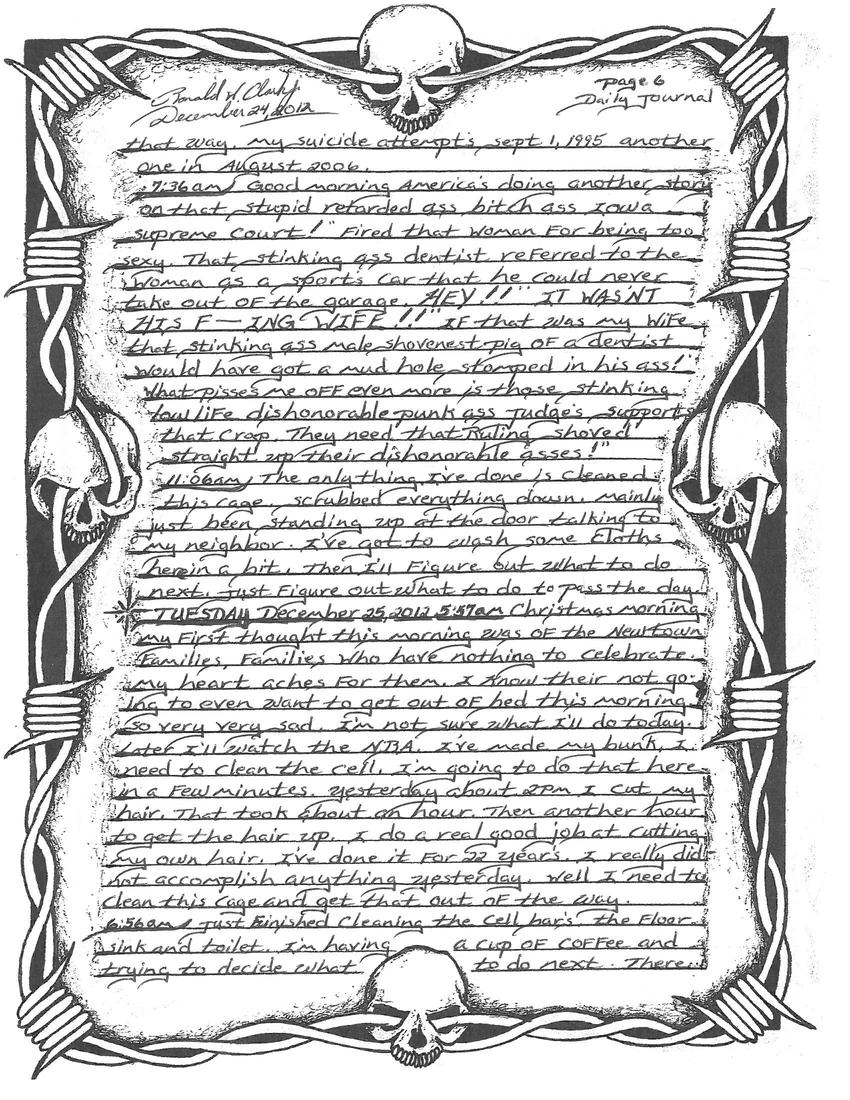 Ronald W. Clark Jr.
December 24, 2012
page 6
Daily Journal
that way. my suicide attempt's sept 1, 1995 another
one in August 2006.
:7:36am/ Good morning America's doing another story
on that stupid retarded ass bitch ass Iowa
supreme Court!" Fired that Woman For being too
sexy. That stinking ass dentist referred to the
Woman as a sports Car that he could never
take out OF the garage. HEY!!" IT WAS'NT
HIS F--ING WIFE!!" IF that was my WiFe
that stinking ass male shovenest pig OF a dentist
Would have got a mud hole stomped in his ass!"
What pisses me OFF even more is those stinking
low liFe dishonorable punk ass Judge's supports
that Crap. They need that Ruling shoved
straight up their dishonorable asses!"
:11:06am/ The only thing I've done is Cleaned
this cage. scrubbed everything down. Mainly
just been standing up at the door talking to
my neighbor. I've got to wash some Cloths
here in a bit. Then I'll Figure out what to do
next. Just Figure out what to do to pass the day.
TUESDAY December 25, 2012 5:57am Christmas morning
my First thought this morning was OF the Newtown
Families, Families Who have nothing to Celebrate.
My heart aches For them. I Know their not go-
ing to even want to get out OF bed this morning.
so very very sad. I'm not sure what I'll do today.
Later I'll watch the NBA. I've made my bunk, I
need to Clean the Cell. I'm going to do that here
in a Few minutes. yesterday about 2Pm I Cut my
hair. That took about an hour. Then another hour
to get the hair up. I do a real good job at Cutting
my own hair. I've done it For 22 year's. I really did
not accomplish anything yesterday. Well I need to
Clean this Cage and get that out OF the way.
6:56am/ Just Finished Cleaning the Cell bar's. the Floor
sink and toilet. I'm having a Cup OF CoFFee and
trying to decide what to do next. There